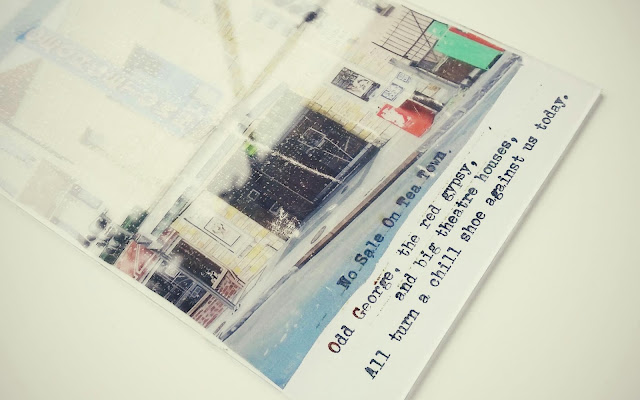 No Sale On Tea Town.
Odd George, the red gypsy,
and big theatre houses,
All turn a chill shoe against us today.